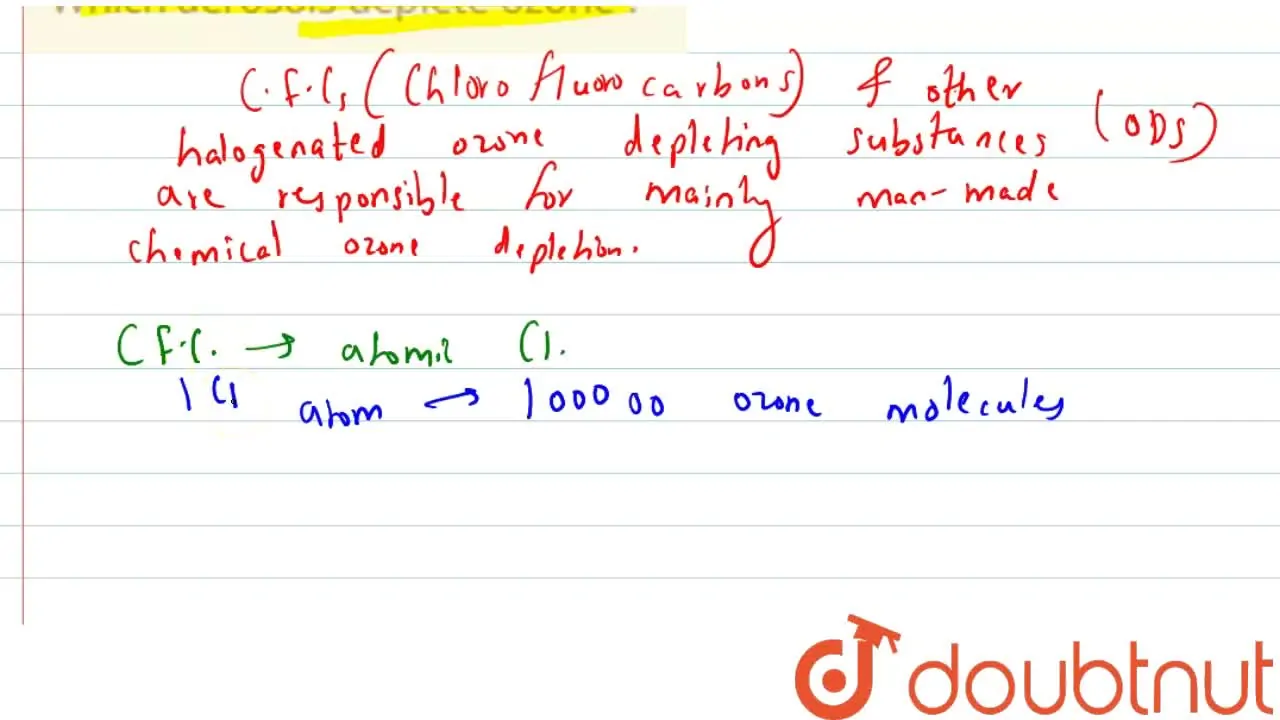 Which aerosols deplete ozone ?
C.F.Cs (Chloro fluoro carbons) & other
halogenated ozone depleting substances (ODS)
are responsible for mainly man-made
chemical ozone depletion.
C F.C. → atomic Cl.
1 Cl atom → 1000 00 ozone molecules
doubtnut